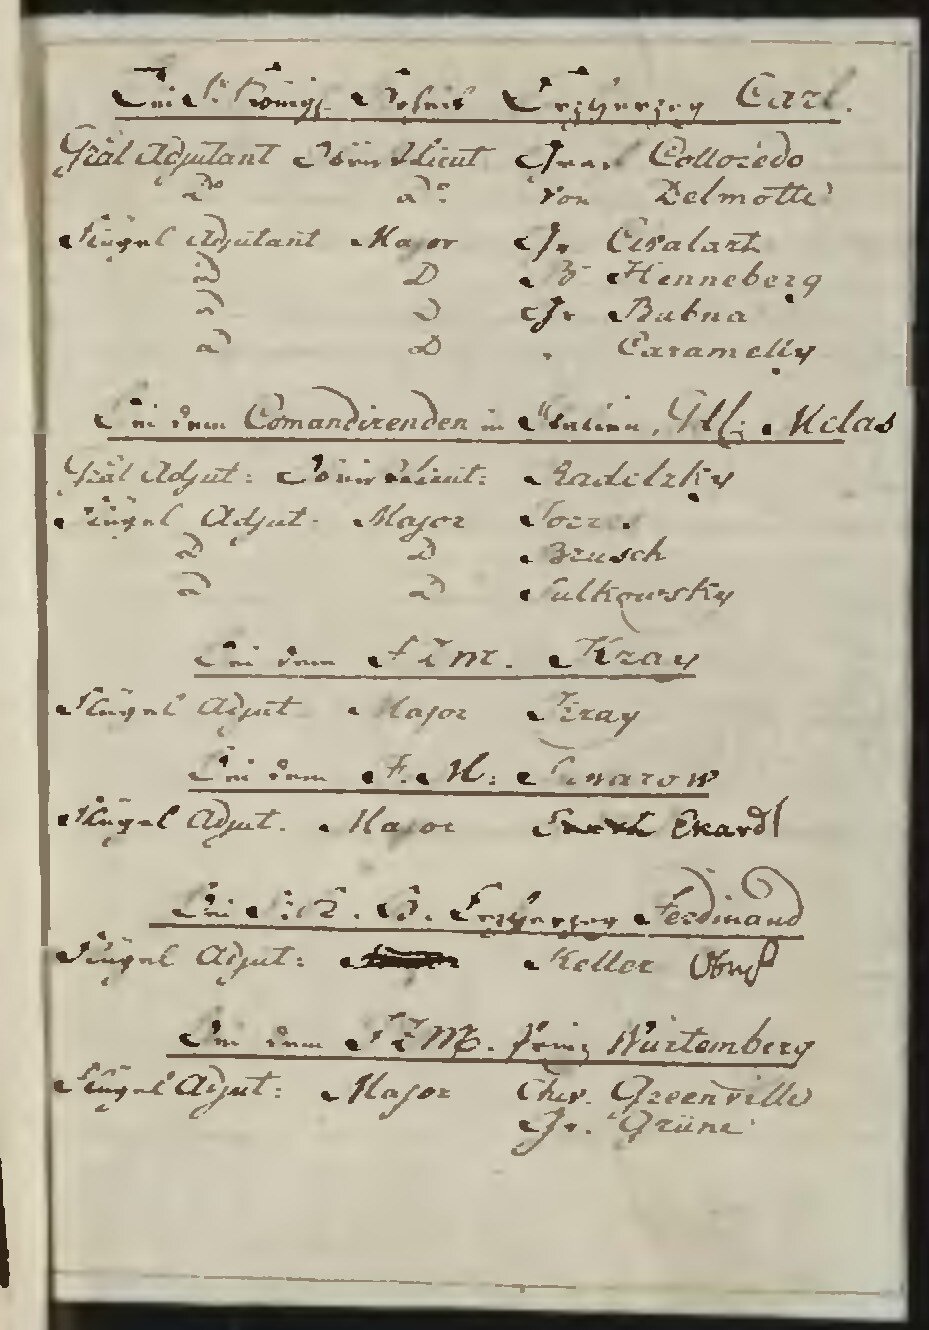 Bei Sr Königl. Hoheit Erzherzog Carl.
Gñal Adjutant Obrist Lieut Graf Colloredo
do do von Delmotte
Flügel Adjutant Major Gr Civalart
d D Henneberg
d D Gr Bubna
d D Caramelly
Bei dem Comandirenden in Italien, Melas
Gñal Adjut: Obrist Lieut: Radetzky
Flügel Adjut. Major Torres
d D Brusch
d d Sulkowsky
Bei dem FZM. Kray
Flügel Adjut Major Fray
Bei dem F. M: Suwarow
Flügel Adjut. Major Ekardt
Bei S: K. H. Erzherzog Ferdinand
Flügel Adjut: Keller Obrist
Bei dem FZM. Prinz Würtemberg
Flügel Adjut: Major Chev. Greenville
Gr. Grüne